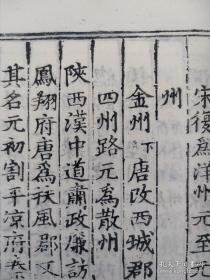 宋復爲洋州元至
州
金州下唐改西城郡
四州路元爲散州
陝西漢中道肅政廉訪
鳳翔府唐爲扶風郡又
其名元初割平涼府